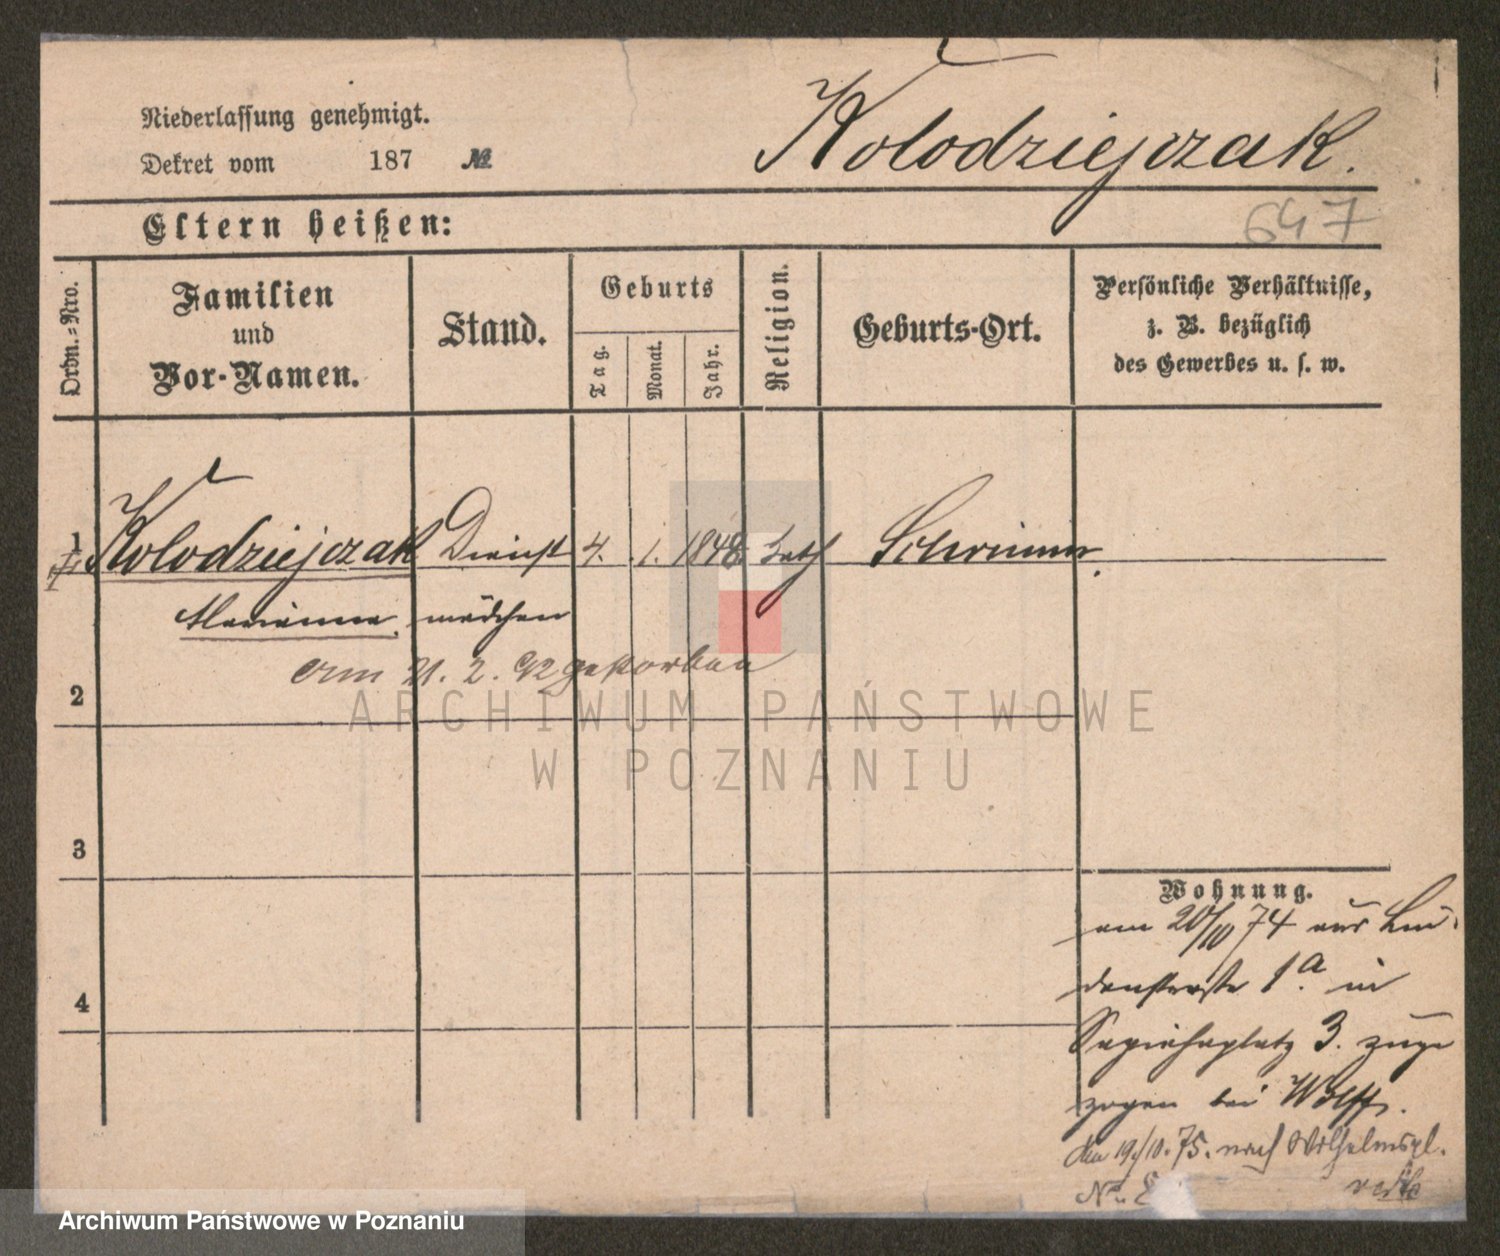 Niederlassung genehmigt.
Dekret vom 187 №
Kolodziejczak.
Eltern heißen:
647
Ordn.=Nro.
Familien und Vor-Namen.
Stand.
Geburts
Tag.
Monat.
Jahr.
Religion.
Geburts-Ort.
Persönliche Verhältnisse,
z. B. bezüglich
des Gewerbes u. s. w.
1 Kolodziejczak Dienst 4. 1. 1848 kath Schrimm.
Marianna mädchen
Am 21. 2. 92 gestorben
2
3
4
Wohnung.
am 20/10 74 aus Lin-
denstraße 1a. in
Sapiehaplatz 3. zuge
zogen bei Wolff.
Am 19/10. 75. nach Wilhelmspl.
No.
ARCHIWUM PAŃSTWOWE
W POZNANIU
Archiwum Państwowe w Poznaniu